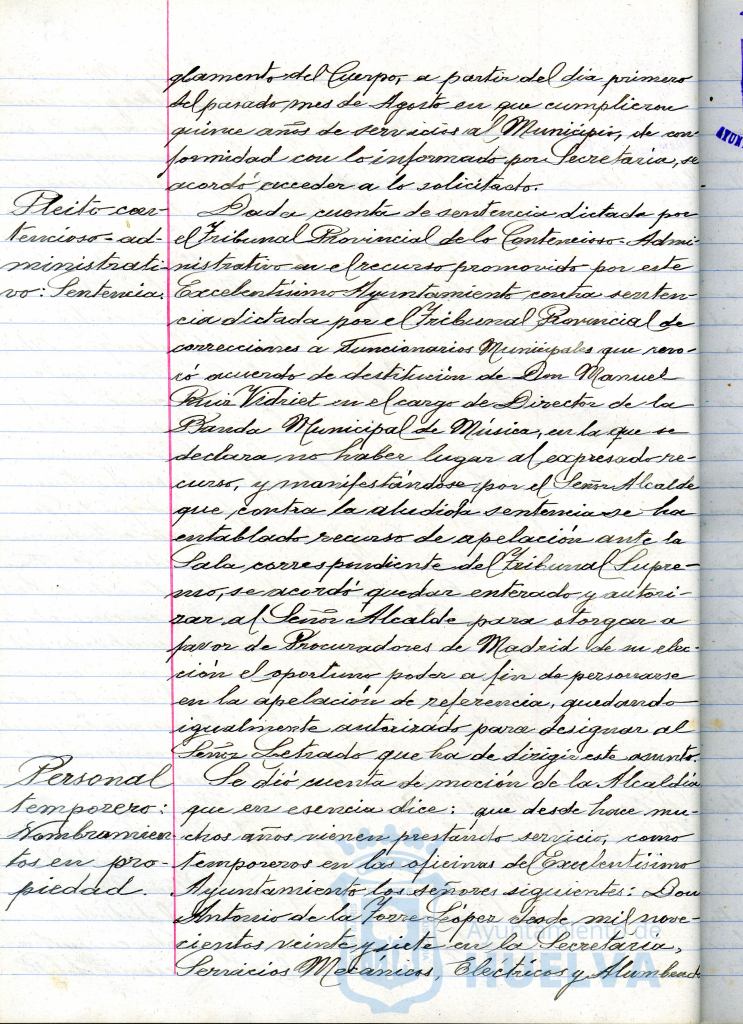 glamento del Cuerpo, a partir del dia primero
del pasado mes de Agosto en que cumplieron
quince años de servicios al Municipio, de con-
formidad con lo informado por Secretaría, se
acordó acceder a lo solicitado.
Pleito con-
tencioso-ad-
ministrati-
vo: Sentencia.
Dada cuenta de sentencia dictada por
el Tribunal Provincial de lo Contencioso-Admi-
nistrativo en el recurso promovido por este
Excelentísimo Ayuntamiento contra senten-
cia dictada por el Tribunal Provincial de
correcciones a Funcionarios Municipales que revo-
có acuerdo de destitución de Don Manuel
Ruiz Vidriet en el cargo de Director de la
Banda Municipal de Música, en la que se
declara no haber lugar al expresado re-
curso, y manifestándose por el Señor Alcalde
que contra la aludida sentencia se ha
entablado recurso de apelación ante la
Sala correspondiente del Tribunal Supre-
mo, se acordó quedar enterado y autori-
zar al Señor Alcalde para otorgar a
favor de Procuradores de Madrid de su elec-
ción el oportuno poder a fin de personarse
en la apelación de referencia, quedando
igualmente autorizado para designar al
Señor Letrado que ha de dirigir este asunto.
Personal
temporero:
Nombramien-
tos en pro-
piedad.
Se dió cuenta de moción de la Alcaldía
que en esencia dice: que desde hace mu-
chos años vienen prestando servicio, como
temporeros en las oficinas del Excelentísimo
Ayuntamiento los señores siguientes: Don
Antonio de la Torre López desde mil nove-
cientos veinte y siete en la Secretaría,
Servicios Mecánicos, Eléctricos y Alumbrado
Ayuntamiento de
HUELVA